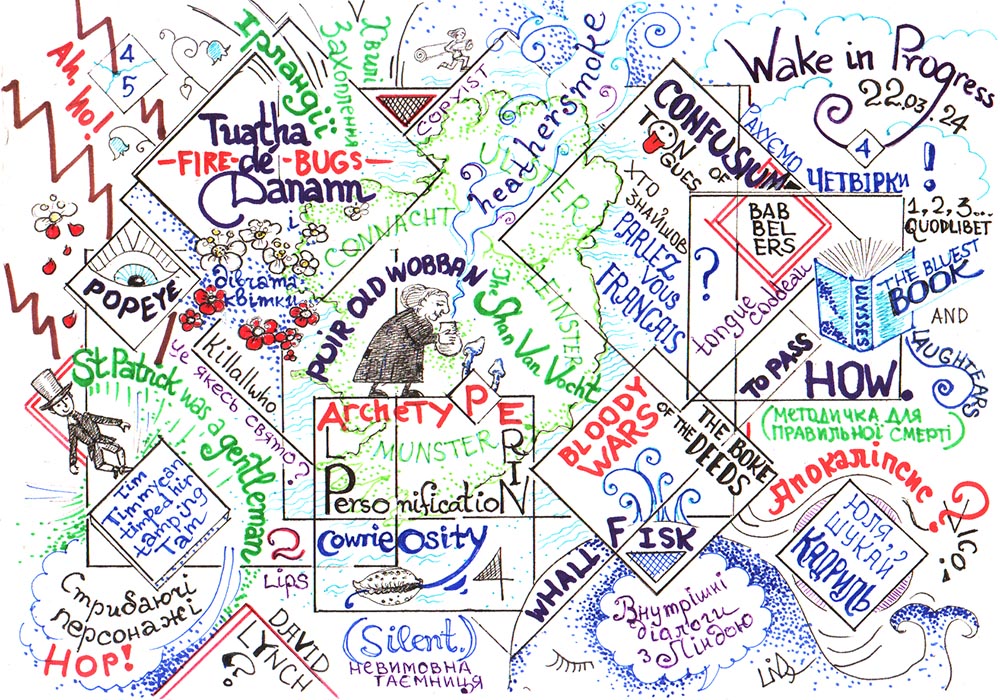 Ah, No!
4
5
Ірландії
Хвилі
Захоплення
corxist
Tuatha
-FIRE-de-BUGS-
Danann
і
дівчата
квітки
POPEYE
це
якесь свято?
Killallwho
St Patrick was a gentleman
Tim
Timmycan
timped hir
tampting
Tam
Стрибаючі
персонажі
HOP!
DAVID
LYNCH
?
2
Lips
heathersmoke
ULSTER
CONNACHT
LEINSTER
MUNSTER
PUIR OLD WOBBAN
The Shan Van Vocht
ArchetyPE
L
R
I
PersonificatioN
Cowrieosity
4
(Silent.)
невимовна
таємниця
Wake in Progress
22.03.24
4
рахуємо
ЧЕТВІРКИ!
1, 2, 3...
QUODLIBET
CONFUSIUM
TON
GUES
OF
ХТО
ЗНАЙШОВ
PARLEZ
VOUS
FRANÇAIS
?
BAB
BEL
ERS
tongue
coddeau
ULYSSES
THE BLUEST
BOOK
AND
LAUGHTEARS
TO PASS
HOW.
(МЕТОДИЧКА ДЛЯ
ПРАВИЛЬНОЇ СМЕРТІ)
BLOODY
WARS
OF
THE
THE BOKE
DEEDS
WHALL
FISK
Внутрішні
діалоги
з Ліндою
Апокаліпсис?
ЮЛЯ,
ШУКАЙ
КАДРИЛЬ